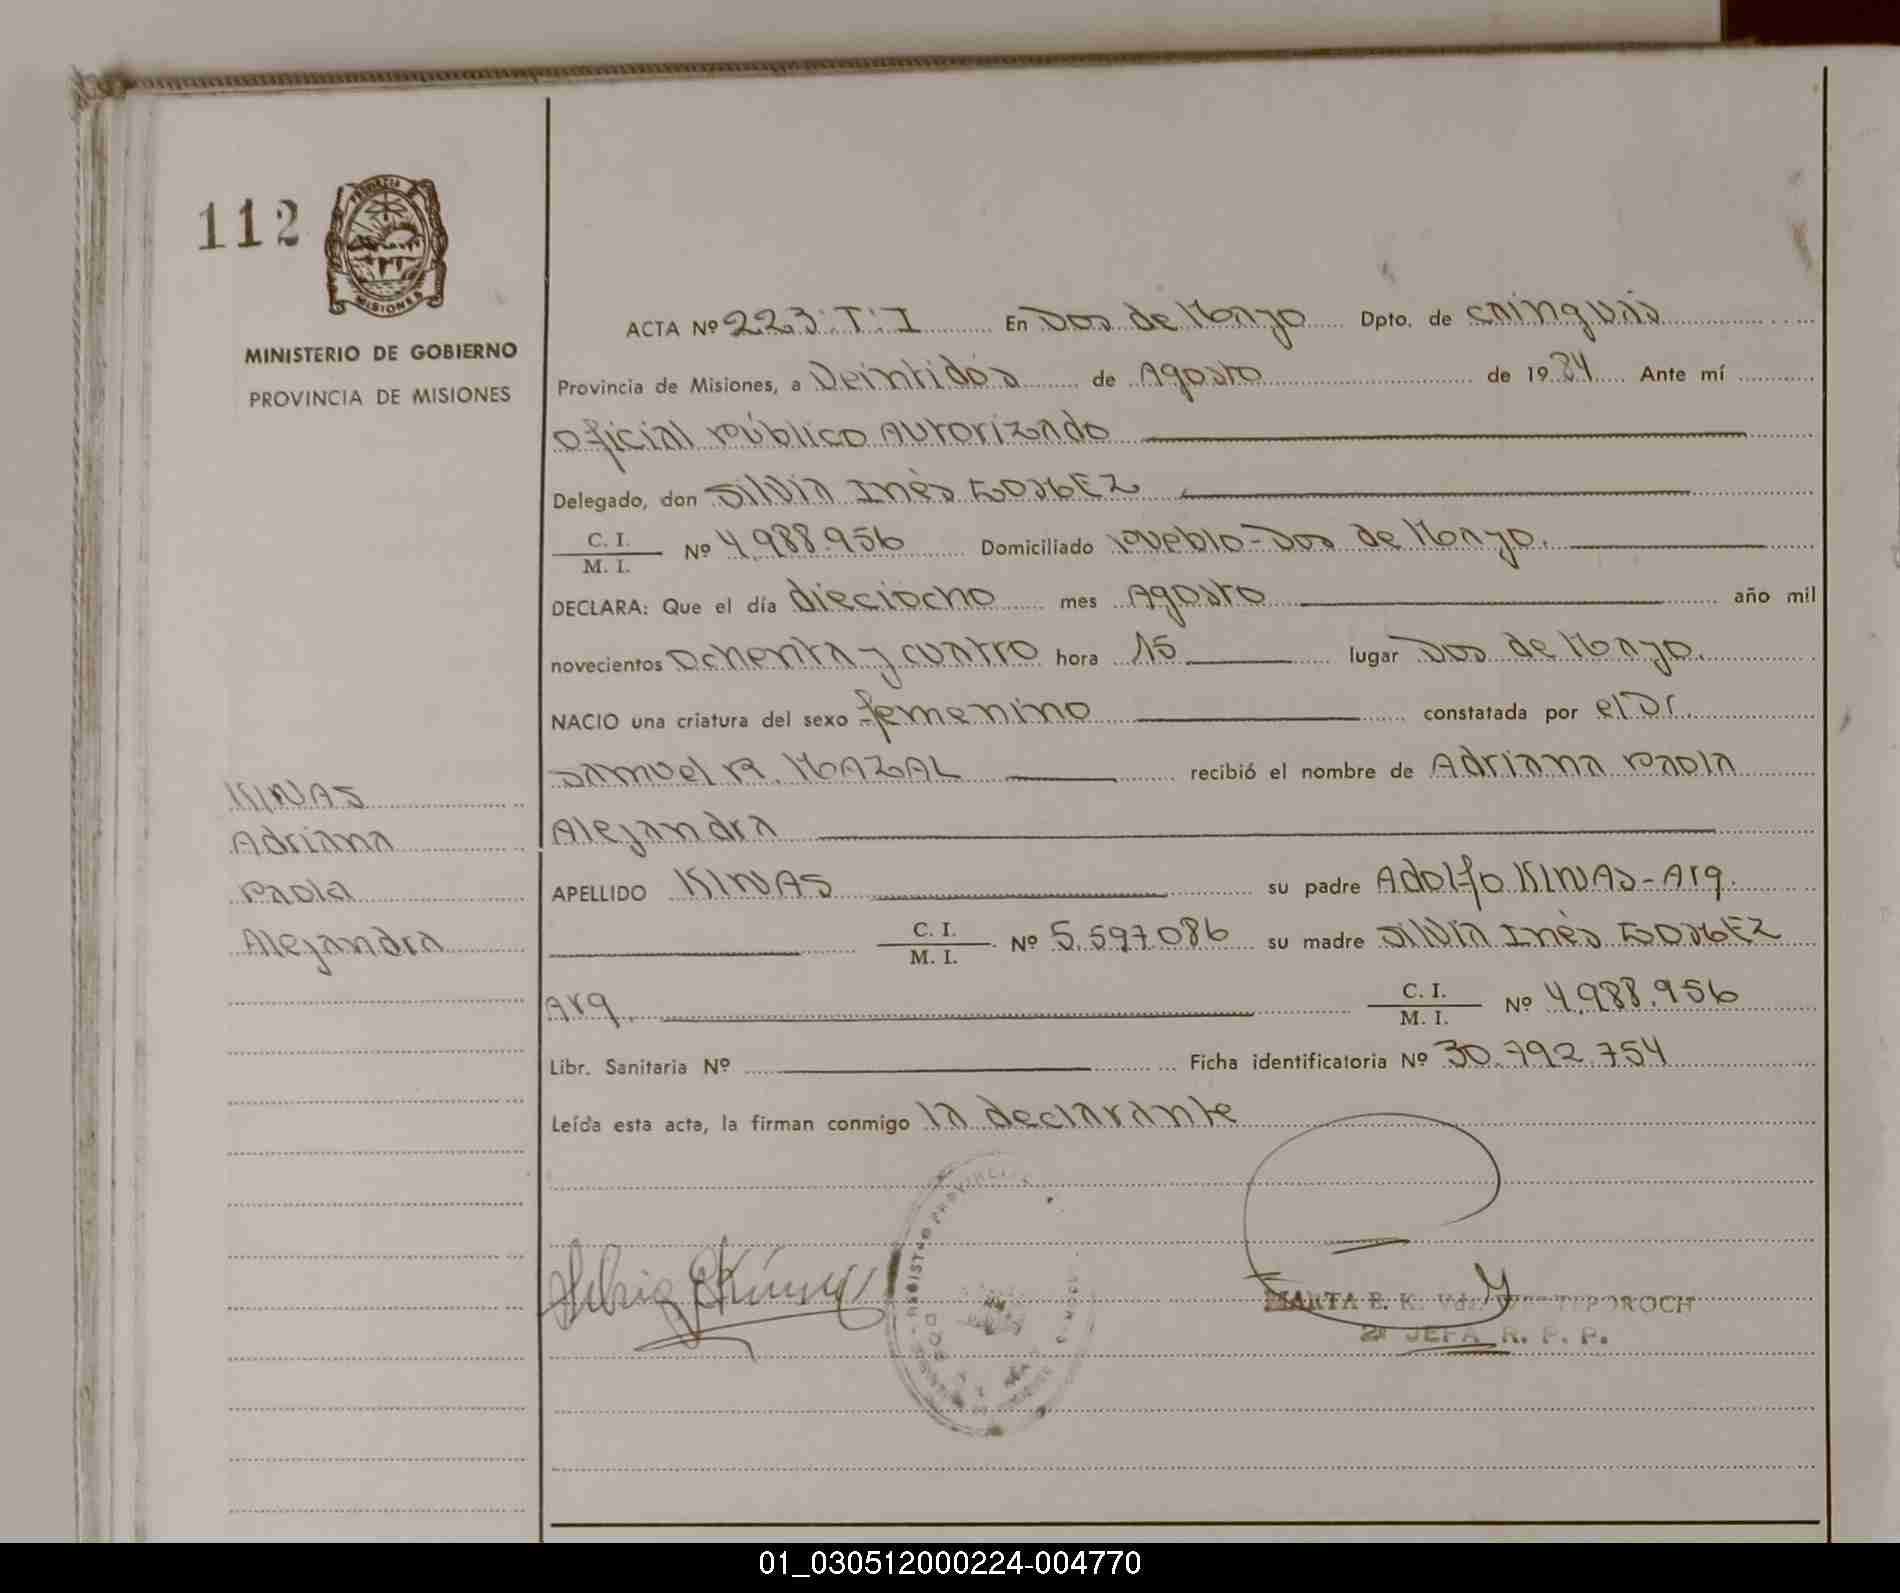 112
PROVINCIA DE
MISIONES
MINISTERIO DE GOBIERNO
PROVINCIA DE MISIONES
ACTA Nº 223:T:I En Dos de Mayo Dpto. de Cainguás
Provincia de Misiones, a Veintidós de Agosto de 1984 Ante mí
oficial público Autorizado
Delegado, don Silvia Inés
C. I.
M. I. Nº 4.988.956 Domiciliado Pueblo-Dos de Mayo.
DECLARA: Que el día dieciocho mes Agosto año mil
novecientos Ochenta y cuatro hora 15 lugar Dos de Mayo.
NACIO una criatura del sexo femenino constatada por el Dr.
Samuel R. MAZAL recibió el nombre de Adriana Paola
Alejandra
KINAS
Adriana
Paola
Alejandra
APELLIDO KINAS su padre Adolfo KINAS-Arg.
C. I.
M. I. Nº 5.597.086 su madre Silvia Inés
Arg. C. I.
M. I. Nº 4.988.956
Libr. Sanitaria Nº Ficha identificatoria Nº 30.792.754
Leída esta acta, la firman conmigo la declarante
Silvia
REGISTRO PROVINCIAL
MARTA E. K. Vda.
2ª JEFA R. P. P.
01_030512000224-004770